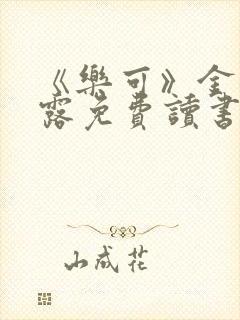 《樂可》金
露免費讀書
山成花